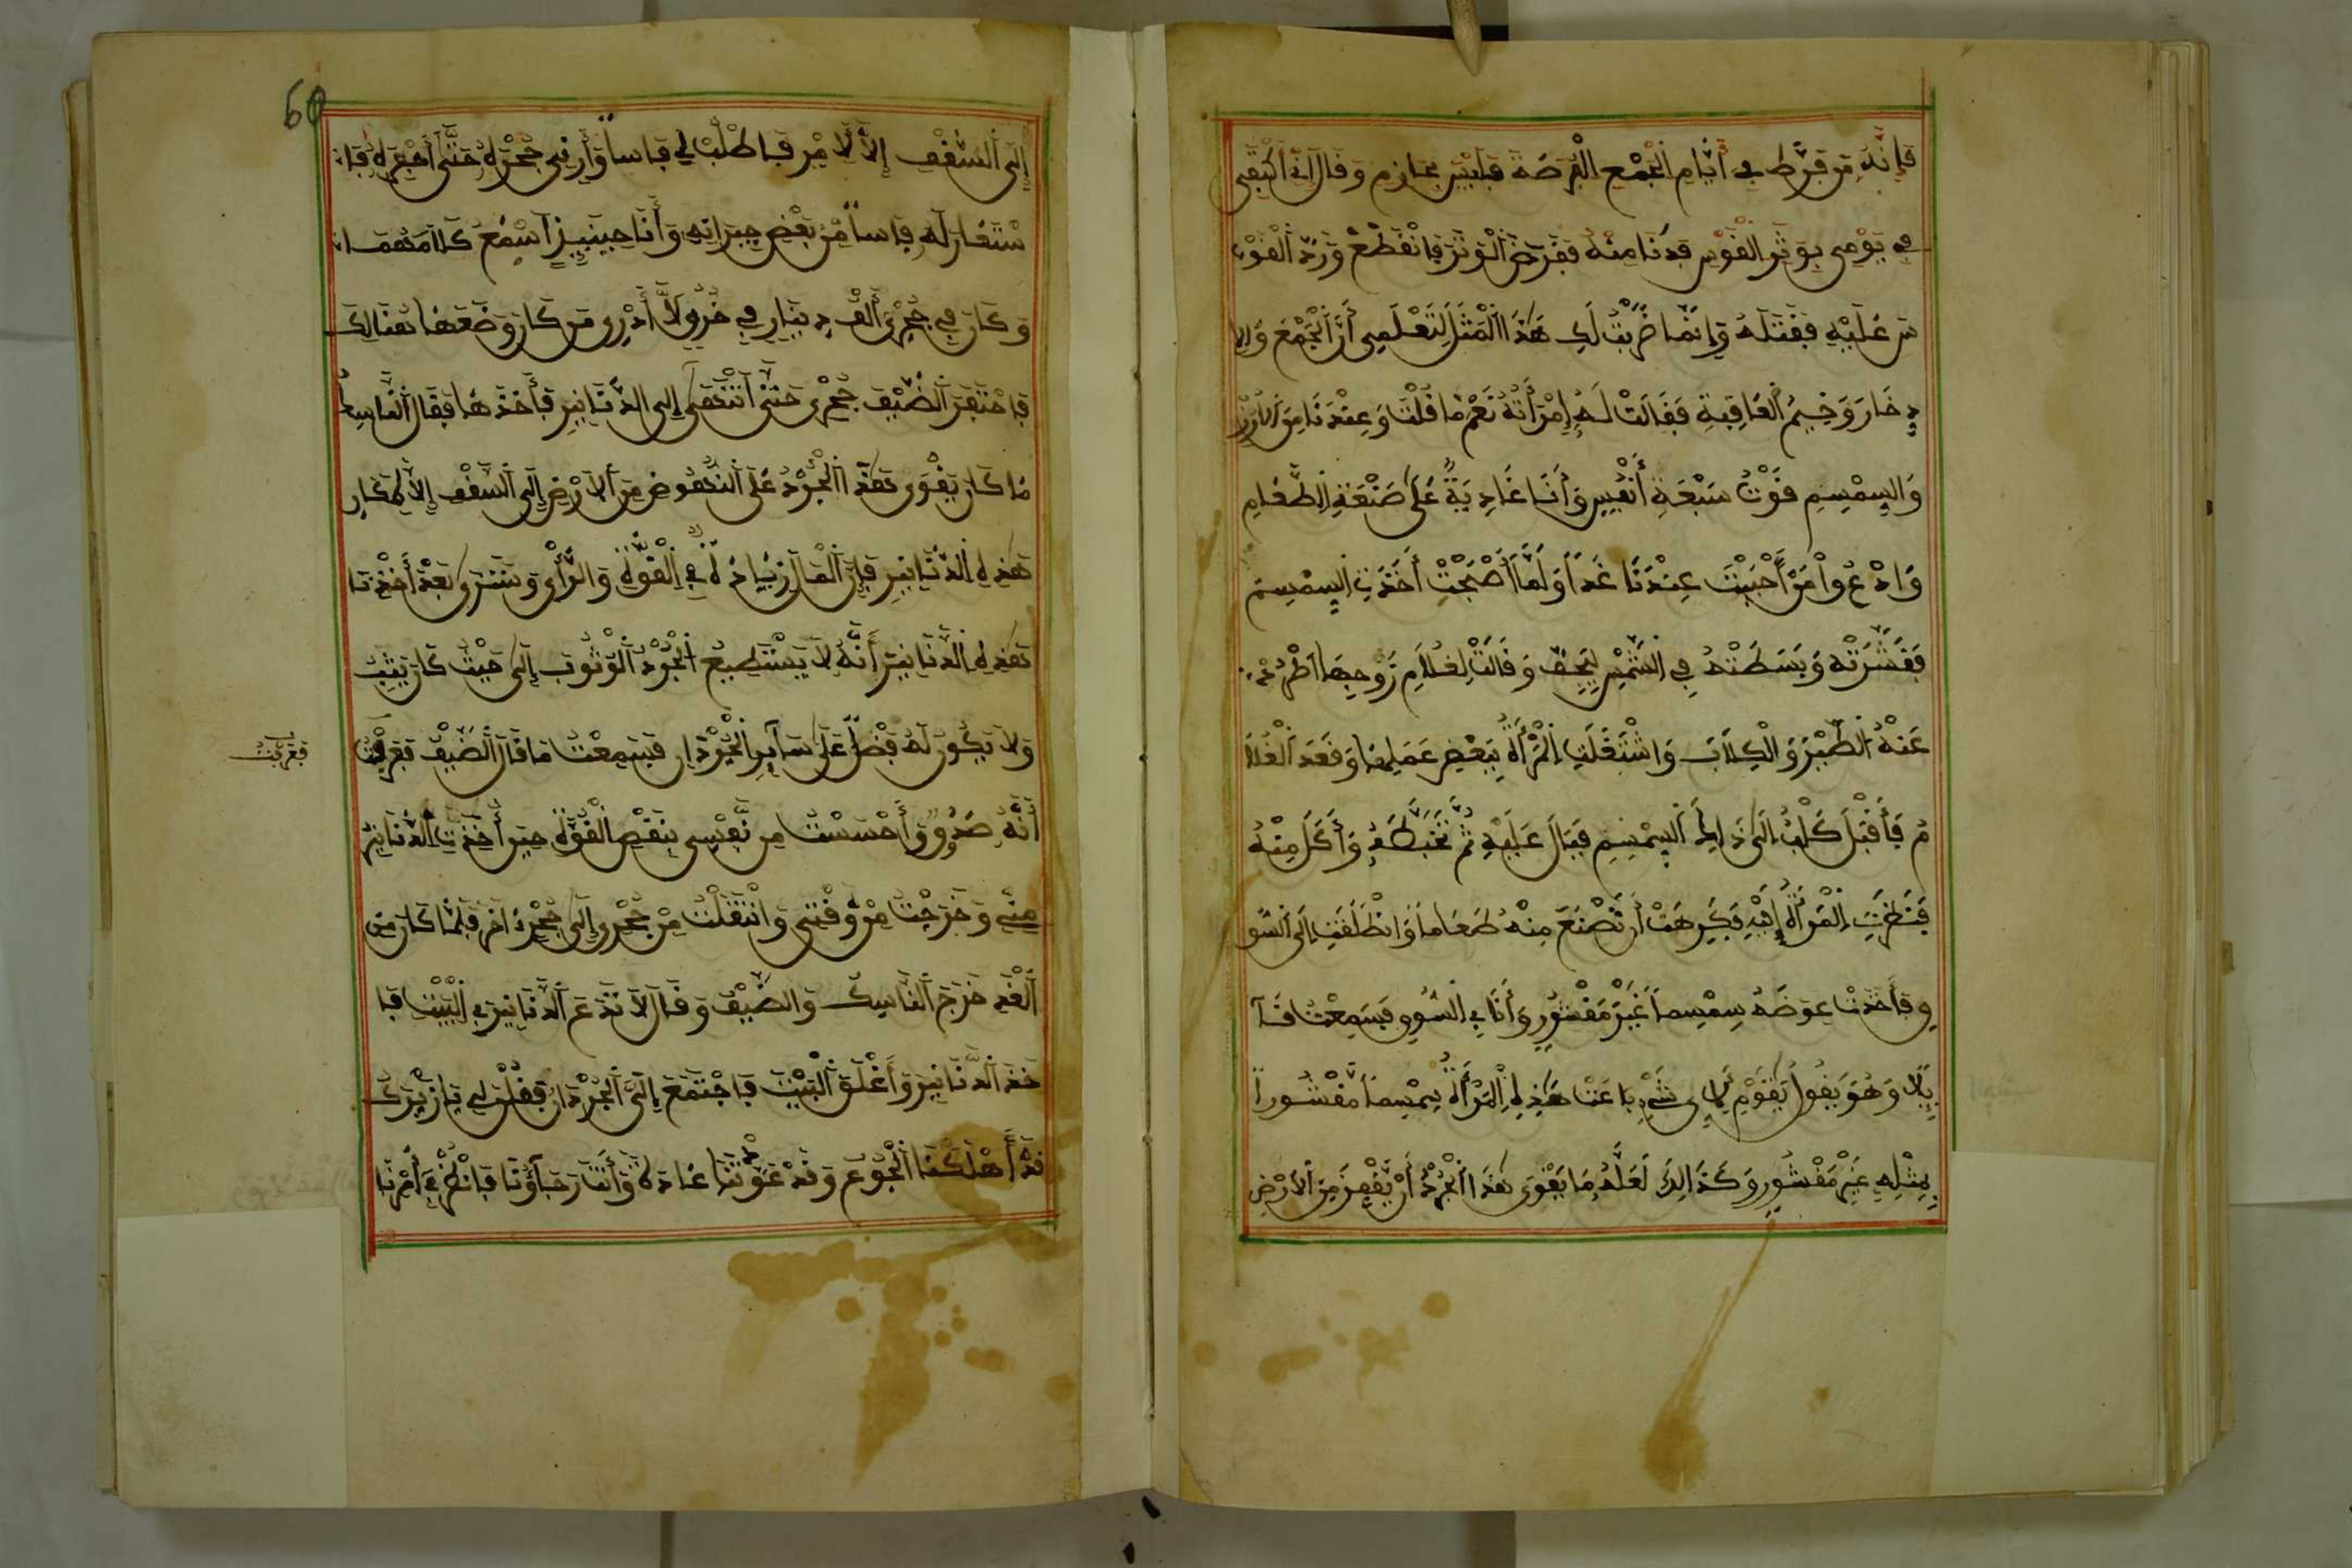 فَإِنَّهُ مَن فَرَّطَ فِي أَيَّامِ الْجَمْعِ الْفُرْصَةَ فَلَيْسَ بِحَازِمٍ وَقَالَ إِنِّي أَكْتَفِي
فِي يَوْمِي بِوَتَرِ الْقَوْسِ فَدَنَا مِنْهُ فَقَرَضَ الْوَتَرَ فَانْقَطَعَ وَرَدَّ الْقَوْ
سَ عَلَيْهِ فَقَتَلَهُ وَإِنَّمَا ضَرَبْتُ لَكِ هَذَا الْمَثَلَ لِتَعْلَمِي أَنَّ الْجَمْعَ وَالإِ
دِخَارَ وَخِيمُ الْعَاقِبَةِ فَقَالَتْ لَهُ إِمْرَأَتُهُ نَعَمْ مَا قُلْتَ وَعِنْدَنَا مِنَ الأَرْزِ
وَالسِّمْسِمِ قُوْتُ سَبْعَةِ أَنْفُسٍ وَأَنَا غَادِيَةٌ عَلَى صَنْعَةِ الطَّعَامِ
وَادْعُوا مَنْ أَحْبَبْتَ عِنْدَنَا غَداً وَلَمَّا أَصْبَحَتْ أَخَذَتِ السِّمْسِمَ
فَقَشَّرَتْهُ وَبَسَطَتْهُ فِي الشَّمْسِ لِيَجِفَّ وَقَالَتْ لِغُلاَمِ زَوْجِهَا اطْرُدْ
عَنْهُ الطَّيْرَ وَالْكِلاَبَ وَاشْتَغَلَتِ الْمَرْأَةُ بِبَعْضِ عَمَلِهَا وَقَعَدَ الْغُلاَ
مُ فَأَقْبَلَ كَلْبٌ إِلَى ذَالِكَ السِّمْسِمِ فَبَالَ عَلَيْهِ ثُمَّ تَخَبَّطَهُ وَأَكَلَ مِنْهُ
فَنَظَرَتِ الْمَرْأَةُ إِلَيْهِ فَكَرِهَتْ أَنْ تَصْنَعَ مِنْهُ طَعَاماً وَانْطَلَقَتْ إِلَى السُّو
قِ فَأَخَذَتْ عِوَضَهُ سِمْسِماً غَيْرَ مَقْشُورٍ وَأَنَا فِي السُّوقِ فَسَمِعْتُ قَآ
ئِلاً وَهُوَ يَقُولُ يَقَوْمِ لأَيِّ شَيْءٍ بَاعَتْ هَذِهِ الْمَرْأَةُ سِمْسِماً مَقْشُوراً
بِمِثْلِهِ غَيْرَ مَقْشُورٍ وَكَذَالِكَ لَعَلَّهُ مَا يَقْوَى هَذَا الْجُرْذُ أَنْ يَقْفِزَ مِنَ الأَرْضِ
60
إِلَى السَّقْفِ إِلاَّ لأَمْرٍ فَاطْلُبْ لِي فَاساً وَأَرِنِي جُحْرَهُ حَتَّى أَحْفِرَهُ فَا
سْتَعَارَ لَهُ فَاساً مِنْ بَعْضِ جِيرَانِهِ وَأَنَا حِينَئِذٍ أَسْمَعُ كَلاَمَهُمَا
وَكَانَ فِي جُحْرِي أَلْفُ دِينَارٍ لاَ أَدْرِي مَن كَانَ وَضَعَهَا هُنَالِكَ
فَاحْتَفَرَ الضَّيْفُ جُحْرِي حَتَّى انْتَهَى إِلَى الدَّنَانِيرِ فَأَخَذَهَا فَقَالَ لِلنَّاسِكِ
مَا كَانَ يَقْوَى هَذَا الْجُرْذُ عَلَى النُّهُوضِ مِنَ الأَرْضِ إِلَى السَّقْفِ إِلاَّ لِمَكَانِ
هَذِهِ الدَّنَانِيرِ فَإِنَّ الْمَالَ زِيَادَةٌ فِي الْقُوَّةِ وَالرَّأْيِ وَسَتَرَى بَعْدَ أَخْذِنَا
هَذِهِ الدَّنَانِيرَ أَنَّهُ لاَ يَسْتَطِيعُ الْجُرْذُ الْوُثُوبَ إِلَى حَيْثُ كَانَ يَثِبُ
وَلاَ يَكُونُ لَهُ فَضْلٌ عَلَى سَآئِرِ الْجُرْذَانِ فَسَمِعْتُ مَا قَالَ الضَّيْفُ فَعَرَفْتُ
فعرفت
أَنَّهُ صَدَقَ وَأَحْسَسْتُ مِن نَّفْسِي بِنَقْصِ الْقُوَّةِ حِينَ أُخِذَتِ الدَّنَانِيرُ
مِنِّي وَخَرَجْتُ مِنْ وَقْتِي وَانْتَقَلْتُ مِنْ جُحْرِي إِلَى جُحْرٍ آخَرَ فَلَمَّا كَانَ مِنَ
الْغَدِ خَرَجَ النَّاسِكُ وَالضَّيْفُ وَقَالَ لاَ نَدَعَ الدَّنَانِيرَ فِي الْبَيْتِ فَأَ
خَذَ الدَّنَانِيرَ وَأَغْلَقَ الْبَيْتَ فَاجْتَمَعَ إِلَيَّ الْجُرْذَانُ فَقُلْنَ لِي يَا زَيْرَكُ
قَدْ أَهْلَكَنَا الْجُوعُ وَقَدْ عَوَّدْتَنَا عَادَةً وَأَنْتَ رَجَآؤُنَا فَانْظُرْ فِي أَمْرِنَا